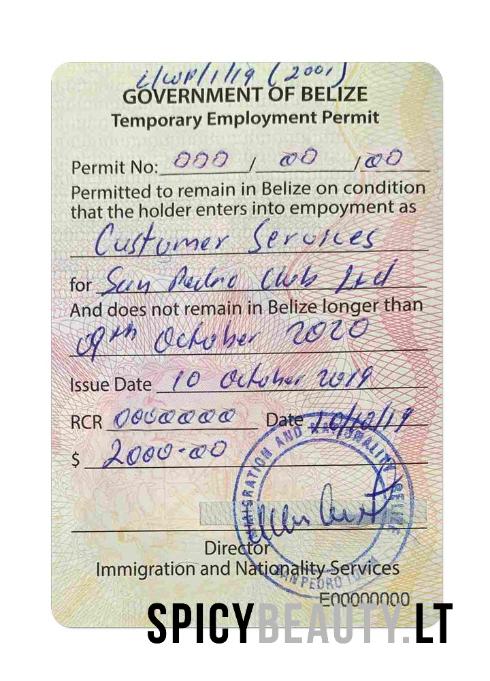 i/WP/1/19 (2001)
GOVERNMENT OF BELIZE
Temporary Employment Permit
Permit No: 000 / 00 / 00
Permitted to remain in Belize on condition
that the holder enters into empoyment as
Customer Services
for San Pedro Club Ltd
And does not remain in Belize longer than
09th October 2020
Issue Date 10 October 2019
RCR 0000000 Date 10/10/19
$ 2000.00
IMMIGRATION AND NATIONALITY BELIZE
SAN PEDRO TOWN
Director
Immigration and Nationality Services
E00000000
SPICYBEAUTY.LT